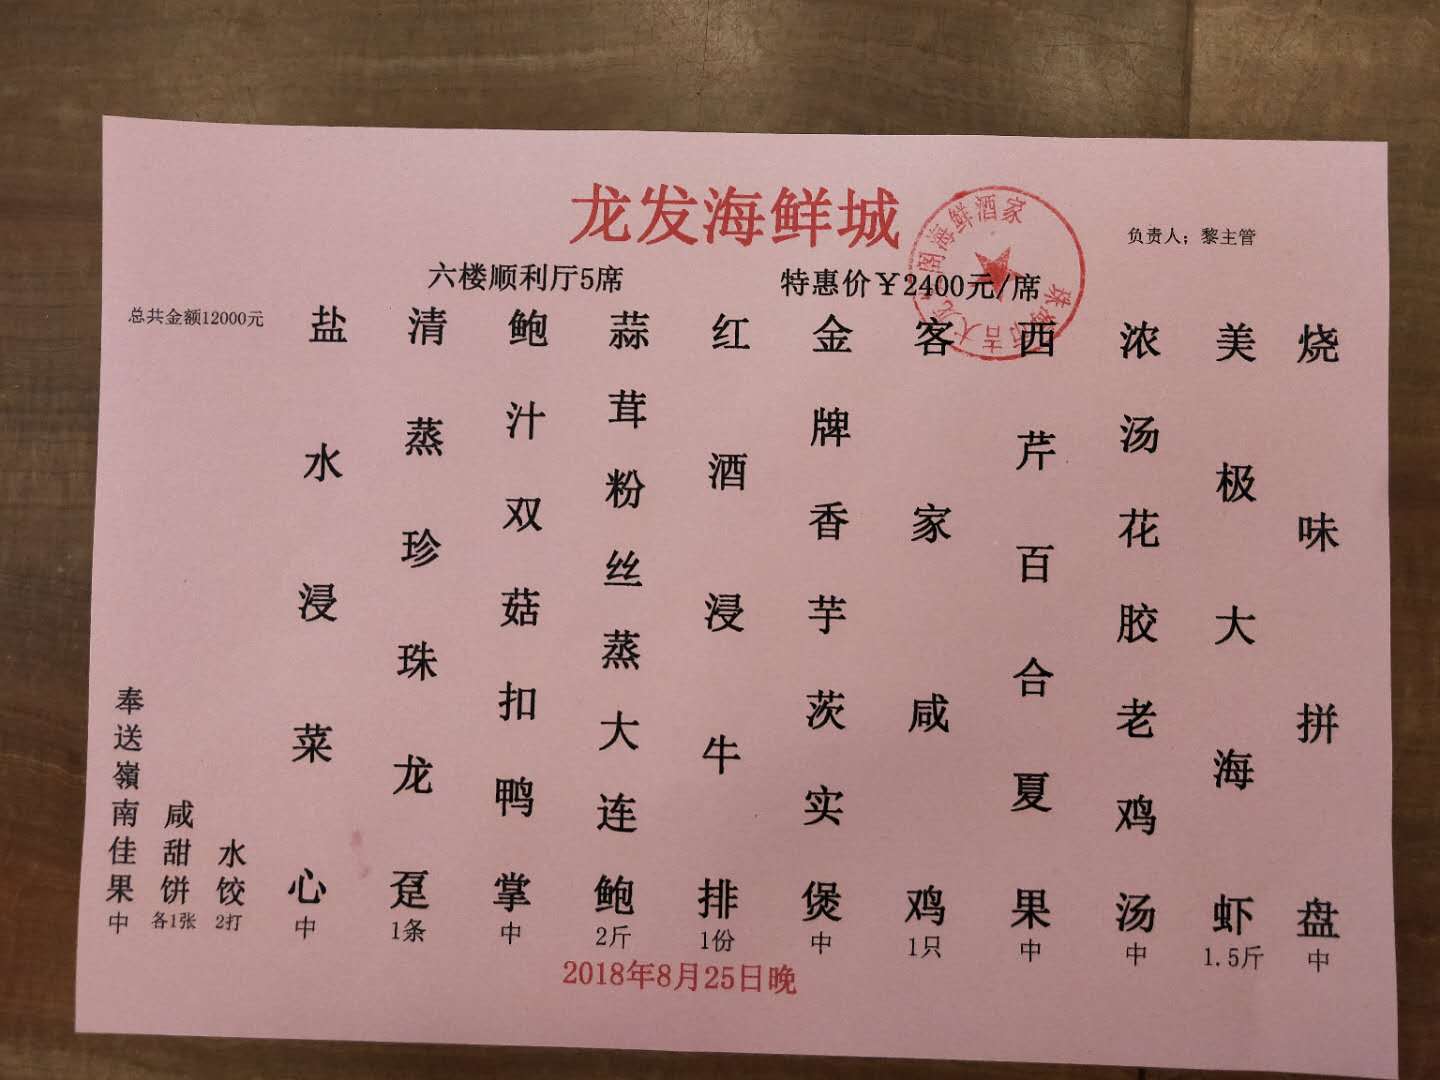 龙发海鲜城
珠海市吉大龙 阁海鲜酒家
负责人；黎主管
六楼顺利厅5席
特惠价￥2400元/席
总共金额12000元
烧味拼盘
中
美极大海虾
1.5斤
浓汤花胶老鸡汤
中
西芹百合夏果
中
客家咸鸡
1只
金牌香芋茨实煲
中
红酒浸牛排
1份
蒜茸粉丝蒸大连鲍
2斤
鲍汁双菇扣鸭掌
中
清蒸珍珠龙趸
1条
盐水浸菜心
中
水饺
2打
咸甜饼
各1张
奉送嶺南佳果
中
2018年8月25日晚